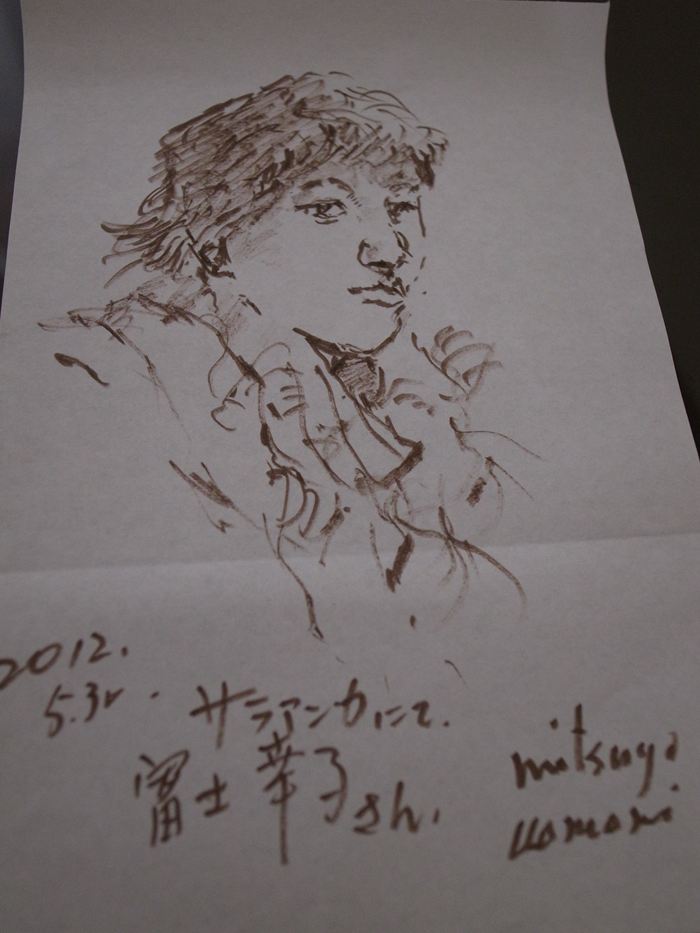 2012.
5.3
サラアンカにて.
富士華子さん.
mitsuyo